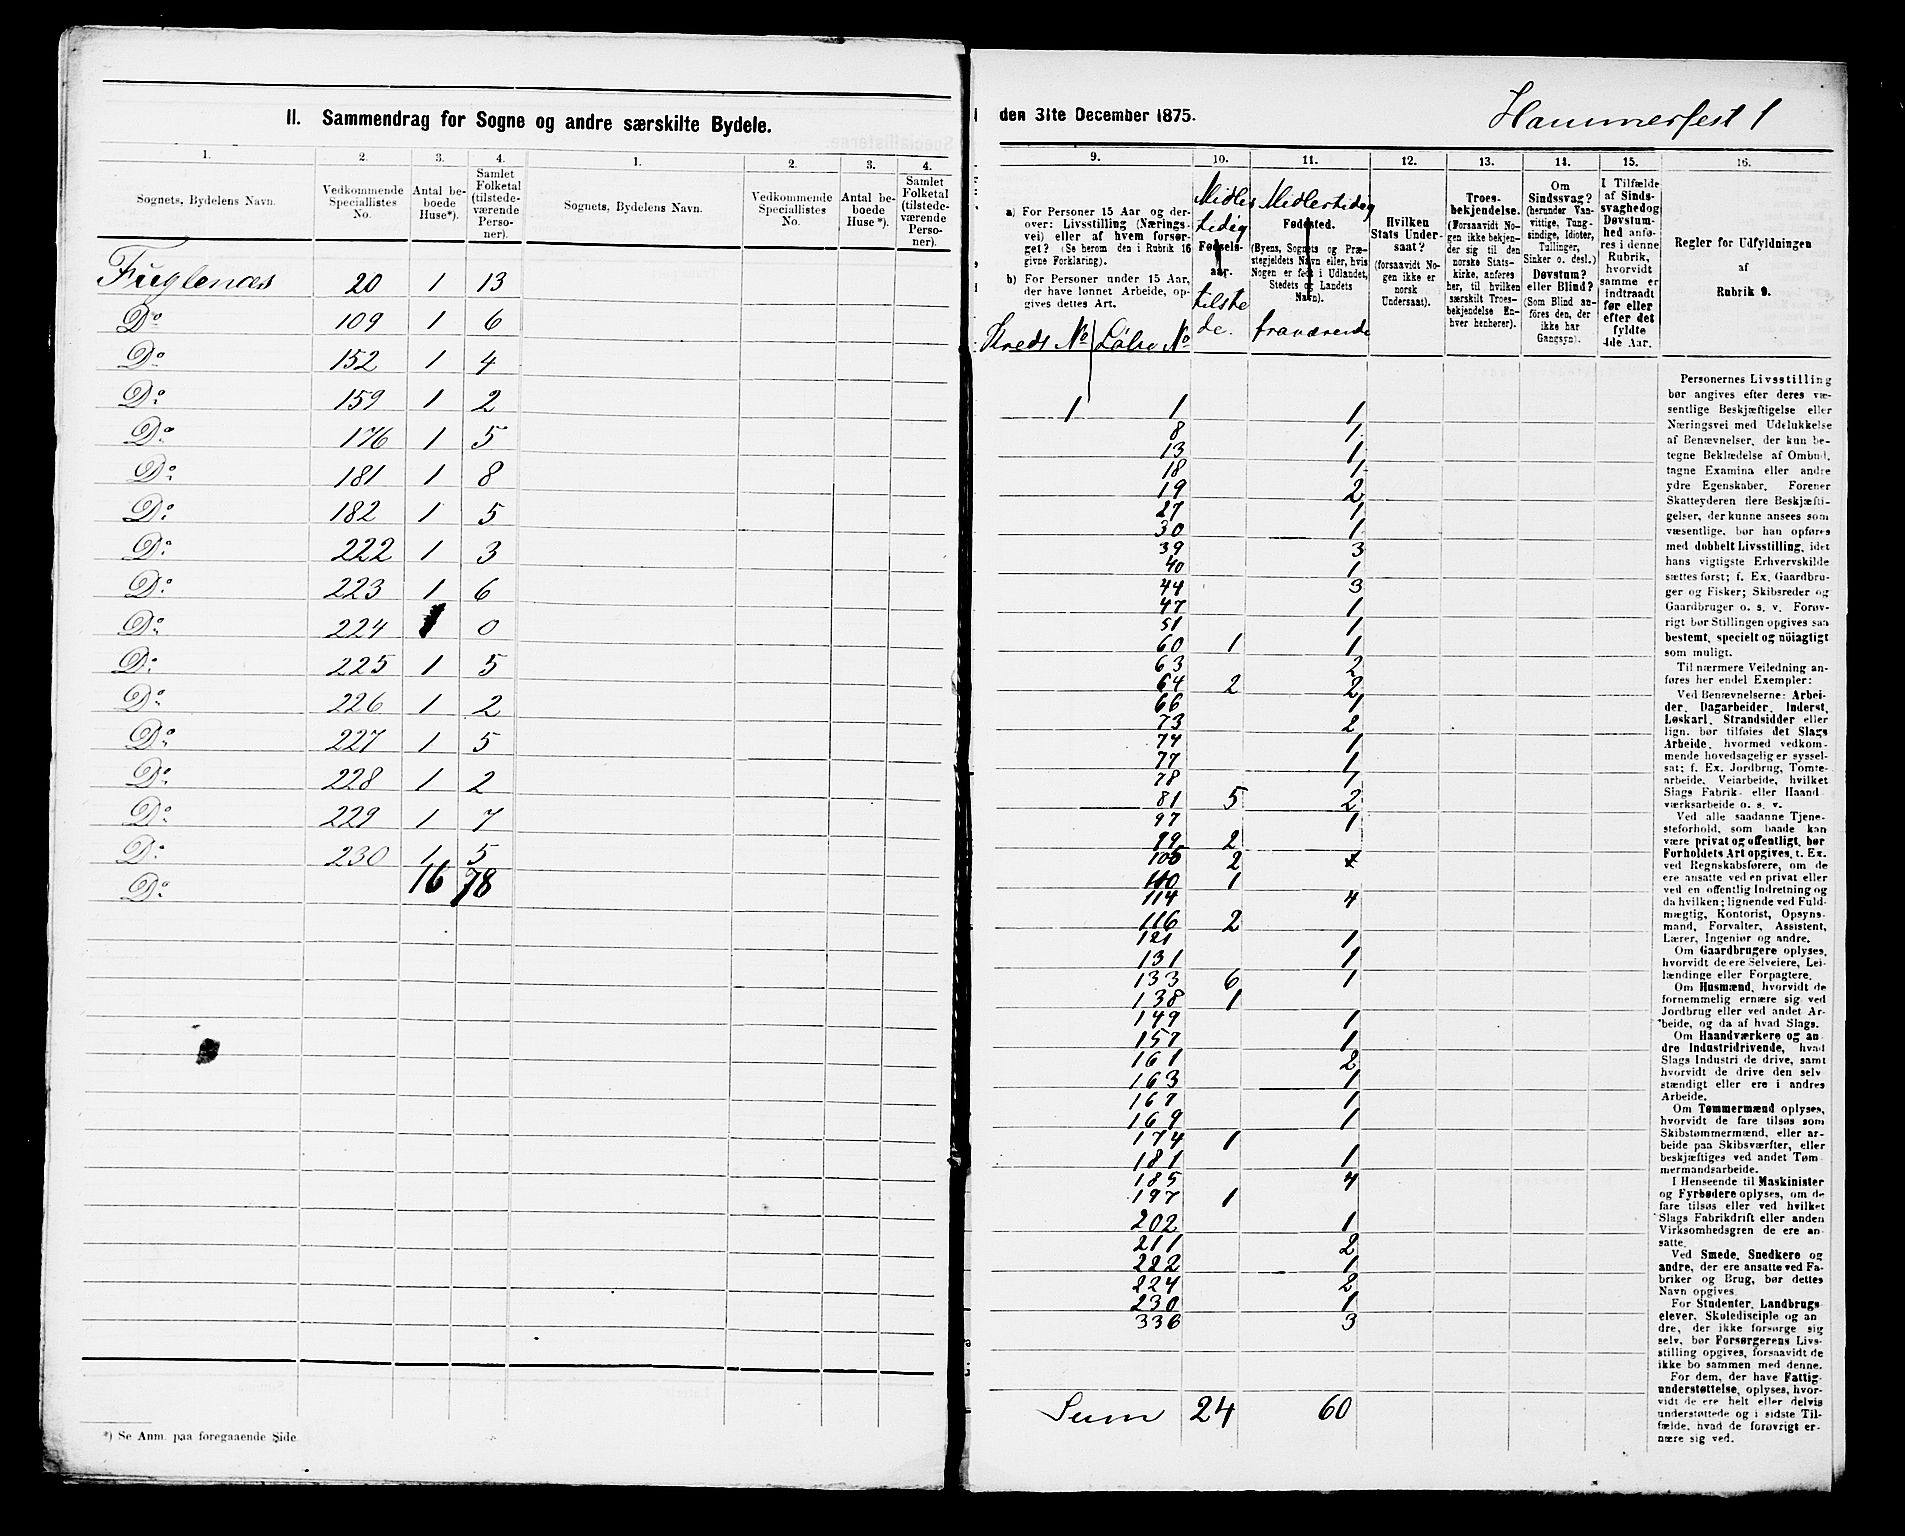 II. Sammendrag for Sogne og andre særskilte Bydele.
1. 2. 3. 4. 1. 2. 3. 4.
Sognets, Bydelens Navn. Vedkommende Speciallistes No. Antal beboede Huse*). Samlet Folketal (tilstedeværende Personer). Sognets, Bydelens Navn. Vedkommende Speciallistes No. Antal beboede Huse*). Samlet Folketal (tilstedeværende Personer).
Fuglenæs 20 1 13
Do 109 1 6
Do 152 1 4
Do 159 1 2
Do 176 1 5
Do 181 1 8
Do 182 1 5
Do 222 1 3
Do 223 1 6
Do 224 1 0
Do 225 1 5
Do 226 1 2
Do 227 1 5
Do 228 1 2
Do 229 1 7
Do 230 1 5
Do 16 78
*) Se Anm. paa foregaaende Side.
den 31te December 1875.
Hammerfest 1
9. 10. 11. 12. 13. 14. 15. 16.
a) For Personer 15 Aar og derover: Livsstilling (Næringsvei) eller af hvem forsørget? (Se herom den i Rubrik 16 givne Forklaring).
b) For Personer under 15 Aar, der have lønnet Arbeide, opgives dettes Art.
Kreds No Løbe No
Midlertidig
Fødselsaar.
tilstede.
Midlertidig
Fødested.
(Byens, Sognets og Præstegjeldets Navn eller, hvis Nogen er født i Udlandet, Stedets og Landets Navn).
fraværende
Hvilken Stats Undersaat?
(forsaavidt Nogen ikke er norsk Undersaat).
Troesbekjendelse.
(Forsaavidt Nogen ikke bekjender sig til den norske Statskirke, anføres her, til hvilken særskilt Troesbekjendelse Enhver henhører).
Om Sindssvag? (herunder Vanvittige, Tungsindige, Idioter, Tullinger, Sinker o. desl.) Døvstum? eller Blind? (Som Blind anføres den, der ikke har Gangsyn).
I Tilfælde af Sindssvaghed og Døvstumhed anføres i denne Rubrik, hvorvidt samme er indtraadt før eller efter det fyldte 4de Aar.
Regler for Udfyldningen
af
Rubrik 9.
1 1 1
8 1
13 1
18 1
19 2
27 1
30 1
39 3
40 1
44 3
47 1
51 1
60 1 1
63 2
64 2 2
66 1
73 2
74 1
77 1
78 1
81 5 2
97 1
99 2
105 2
110 1
114 4
116 2
121 1
131 1
133 6 1
138 1
149 1
157 1
161 2
163 1
167 1
169 1
174 1
181 1
185 4
197 1
202 1
211 2
222 1
224 2
230 1
336 3
Sum 24 60
Personernes Livsstilling
bør angives efter deres væ-
sentlige Beskjæftigelse eller
Næringsvei med Udelukkelse
af Benævnelser, der kun be-
tegne Beklædelse af Ombud,
tagne Examina eller andre
ydre Egenskaber. Forener
Skatteyderen flere Beskjæfti-
gelser, der kunne ansees som
væsentlige, bør han opføres
med dobbelt Livsstilling, idet
hans vigtigste Erhvervskilde
sættes først; f. Ex. Gaardbru-
ger og Fisker; Skibsreder og
Gaardbruger o. s. v. Forøv-
rigt bør Stillingen opgives saa
bestemt, specielt og nöiagtigt
som muligt.
Til nærmere Veiledning an-
føres her endel Exempler:
Ved Benævnelserne: Arbei-
der, Dagarbeider, Inderst,
Løskarl, Strandsidder eller
lign. bør tilføies det Slags
Arbeide, hvormed vedkom-
mende hovedsagelig er syssel-
sat; f. Ex. Jordbrug, Tomte-
arbeide, Veiarbeide, hvilket
Slags Fabrik- eller Haand-
værksarbeide o. s. v.
Ved alle saadanne Tjene-
steforhold, som baade kan
være privat og offentligt, bør
Forholdets Art opgives, t. Ex.
ved Regnskabsførere, om de
ere ansatte ved en privat eller
ved en offentlig Indretning og
da hvilken; lignende ved Fuld-
mægtig, Kontorist, Opsyns-
mand, Forvalter, Assistent,
Lærer, Ingeniør og andre.
Om Gaardbrugere oplyses,
hvorvidt de ere Selveiere, Lei-
lændinge eller Forpagtere.
Om Husmænd, hvorvidt de
fornemmelig ernære sig ved
Jordbrug eller ved andet Ar-
beide, og da af hvad Slags.
Om Haandværkere og an-
dre Industridrivende, hvad
Slags Industri de drive, samt
hvorvidt de drive den selv-
stændigt eller ere i andres
Arbeide.
Om Tømmermænd oplyses,
hvorvidt de fare tilsøs som
Skibstømmermænd, eller ar-
beide paa Skibsværfter, eller
beskjæftiges ved andet Tøm-
mermandsarbeide.
I Henseende til Maskinister
og Fyrbødere oplyses, om de
fare tilsøs eller ved hvilket
Slags Fabrikdrift eller anden
Virksomhedsgren de ere an-
satte.
Ved Smede, Snedkere og
andre, der ere ansatte ved Fa-
briker og Brug, bør dettes
Navn opgives.
For Studenter, Landbrugs-
elever, Skoledisciple og an-
dre, der ikke forsørge sig
selv, bør Forsørgerens Livs-
stilling opgives, forsaavidt de
ikke bo sammen med denne.
For dem, der have Fattig-
understøttelse, oplyses, hvor-
vidt de ere helt eller delvis
understøttede og i sidste Til-
fælde, hvad de forøvrigt er-
nære sig ved.